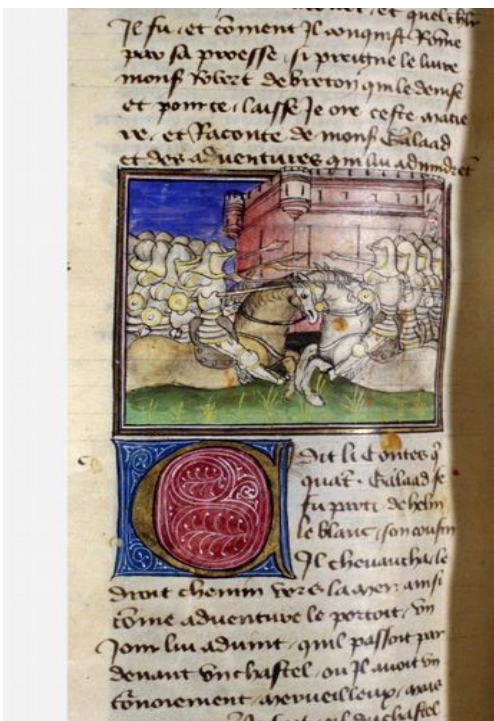 et quel
Il fu, et cõment Il conquist Rõme
par sa proesse, si preigne le livre
mons Robert de breton qui le devise
et pour ce, laisse Je ore ceste matie
re, et Raconte de mons Galaad
et des adventures qui lui advindrẽt
Dit li Contes q̃
quãt, Galaad se
fu parti de helin
le blanc, son cousin
Il chevaucha, le
droit chemin vers la mer, ainsi
cõme adventure le portoit, vn
Jour lui advint, quil passoit par
devant vn chastel, ou Il avoit vn
tõnoiement, merveilleux, mais
du chastel